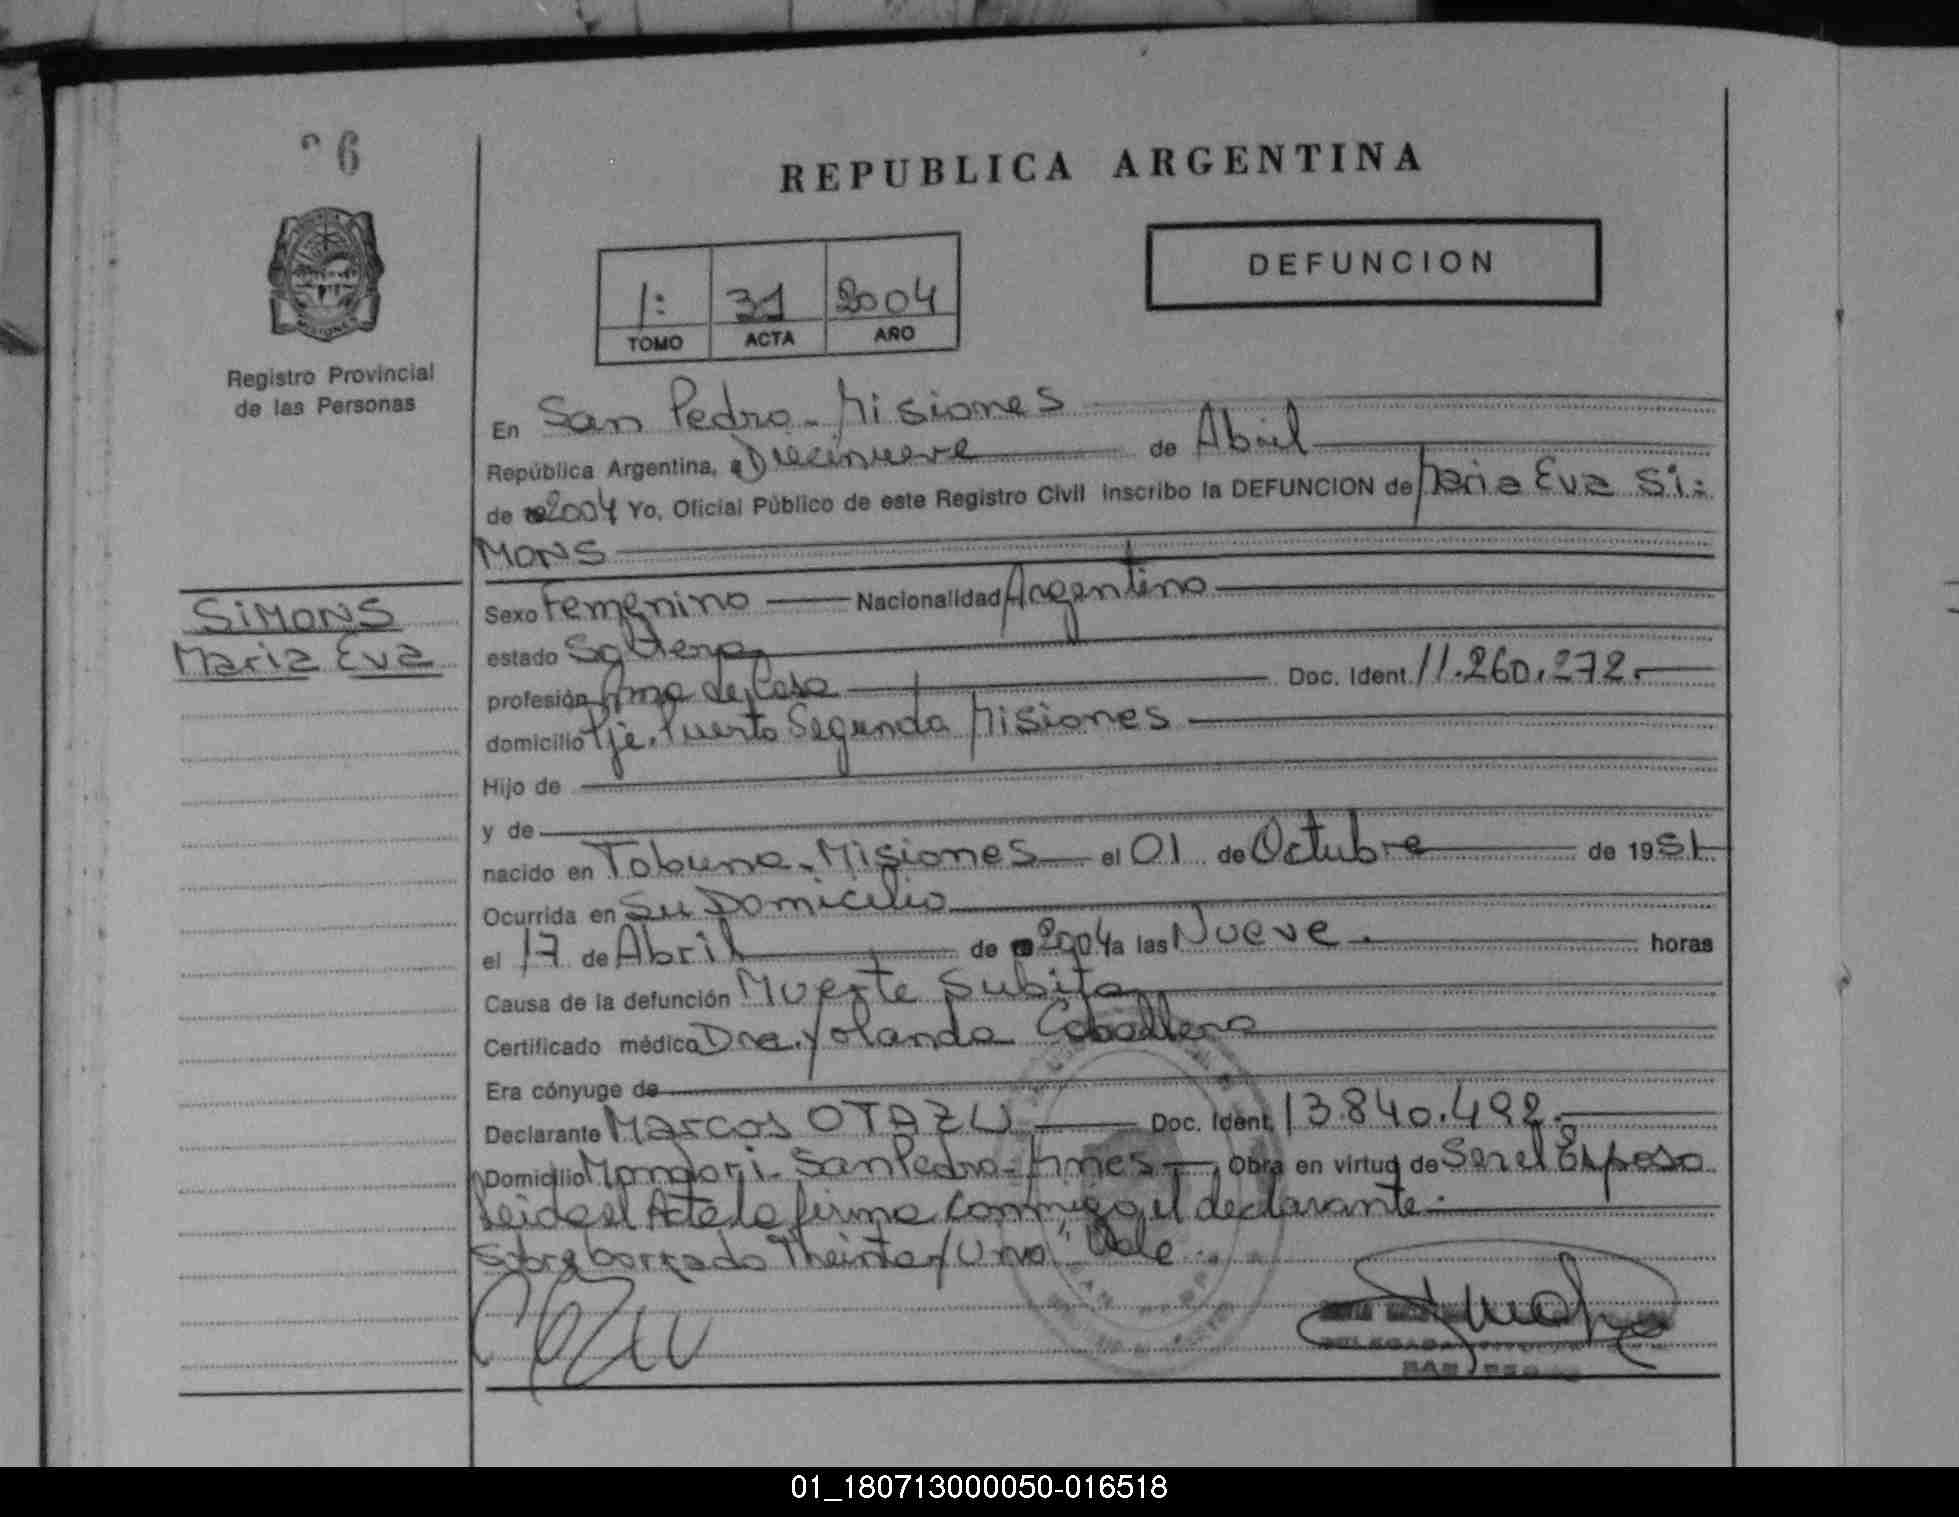 6
REPUBLICA ARGENTINA
DEFUNCION
1: 31 2004
TOMO ACTA AÑO
Registro Provincial
de las Personas
En San Pedro - Misiones
República Argentina, a Diecinueve de Abril
de 2004 Yo, Oficial Público de este Registro Civil inscribo la DEFUNCION de Maria Eva Si=
MONS
SIMONS
Maria Eva
Sexo Femenino Nacionalidad Argentina
estado Soltera
profesión Ama de Casa Doc. Ident. 11.260.272.
domicilio Pje. Puerto Segundo Misiones
Hijo de
y de
nacido en Tobuna - Misiones el 01 de Octubre de 1951
Ocurrida en Su Domicilio
el 17 de Abril de 2004 a las Nueve. horas
Causa de la defunción Muerte Subita
Certificado médico Dra. Yolanda Caballero
Era cónyuge de
Declarante Marcos OTAZU Doc. Ident. 13.840.492.
Domicilio San Pedro - Mnes - Obra en virtud de Ser el Esposo
Leida el Acta la firma conmigo el declarante.
Sobre borrado Treinta y Uno" Vale
01_180713000050-016518